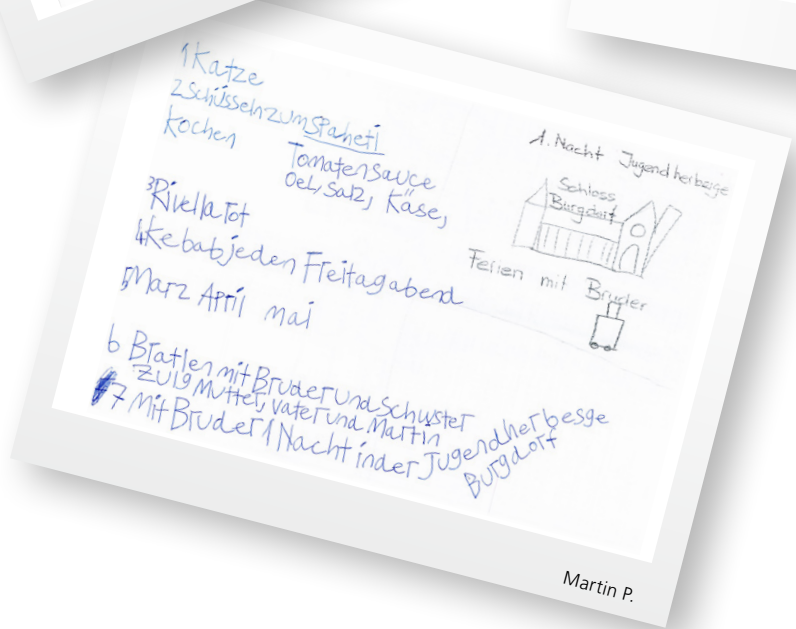 1 Katze
2 Schüsseln zum Spaheti
Kochen
Tomatensauce
Oel, Salz, Käse,
3 Rivella rot
4 Kebab jeden Freitag abend
5 Marz April mai
6 Bratlen mit Bruder und Schwster
Zulg Mutter, Vater und Martin
7 Mit Bruder 1 Nacht in der Jugendherbesge
Burgdorf
1. Nacht Jugendherbeige
Schloss
Burgdorf
Ferien mit Bruder
Martin P.